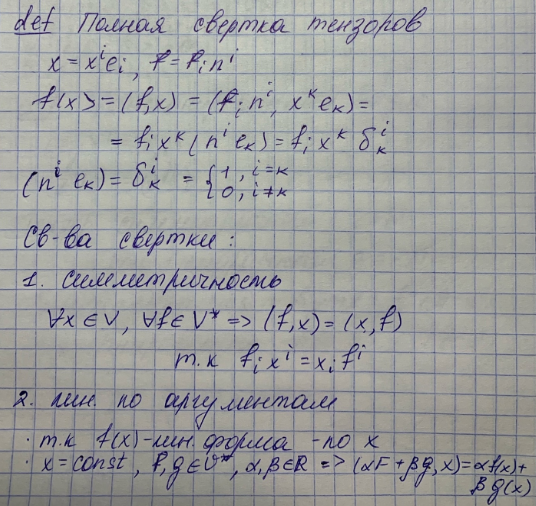 def Полная свертка тензоров
x = xⁱeᵢ, f = fᵢnⁱ
f(x) = (f,x) = (fᵢnⁱ, xᵏeₖ) =
= fᵢxᵏ(nⁱeₖ) = fᵢxᵏ δⁱₖ
(nⁱ eₖ) = δⁱₖ = {1, i=k
0, i≠k
Св-ва свертки:
1. симметричность
∀x∈V, ∀f∈V* => (f,x) = (x,f)
т.к fᵢxⁱ = xᵢfⁱ
2. лин. по аргументам
· т.к f(x)-лин. форма - по x
· x = const, f,g∈V*, α,β∈R => (αF+βg,x) = αf(x)+
βg(x)